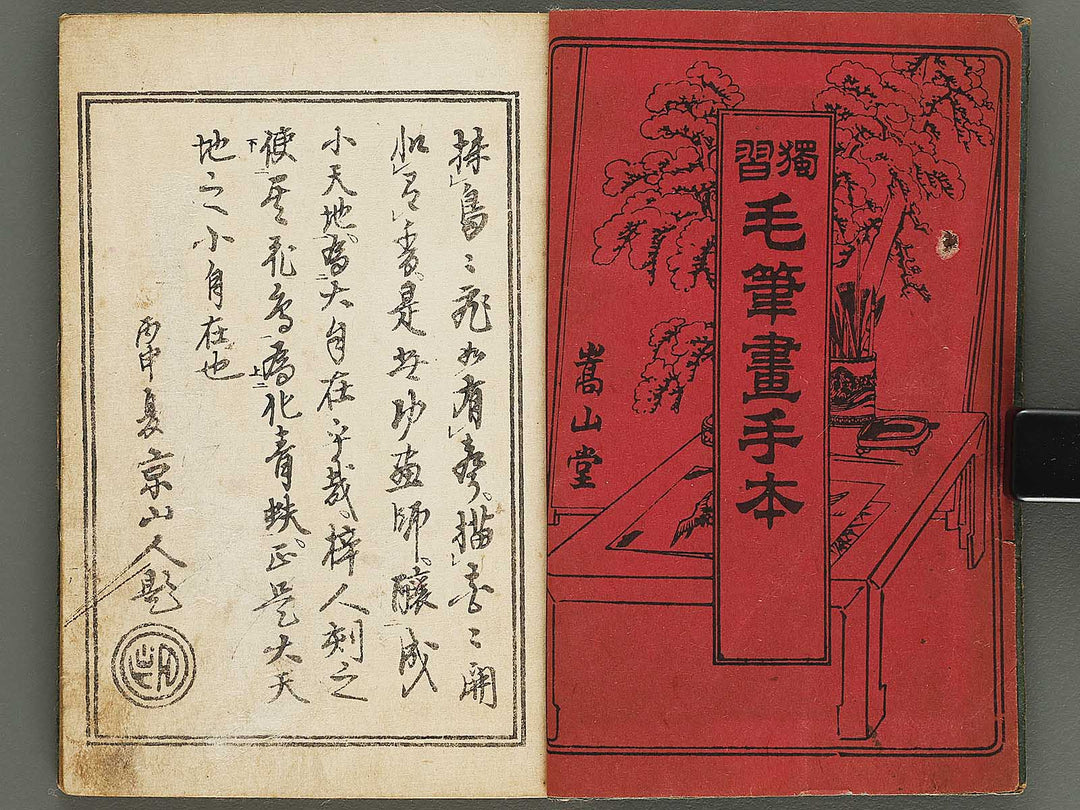 獨習
毛筆畫手本
嵩山堂
鳥〻飛如有声。描花〻開
如有香。是其妙畫師。釀成
小天地。為大自在乎哉。梓人刻之
使其飛鳥為化青蚨。正是大天
地之小自在也
丙申夏 京山人題